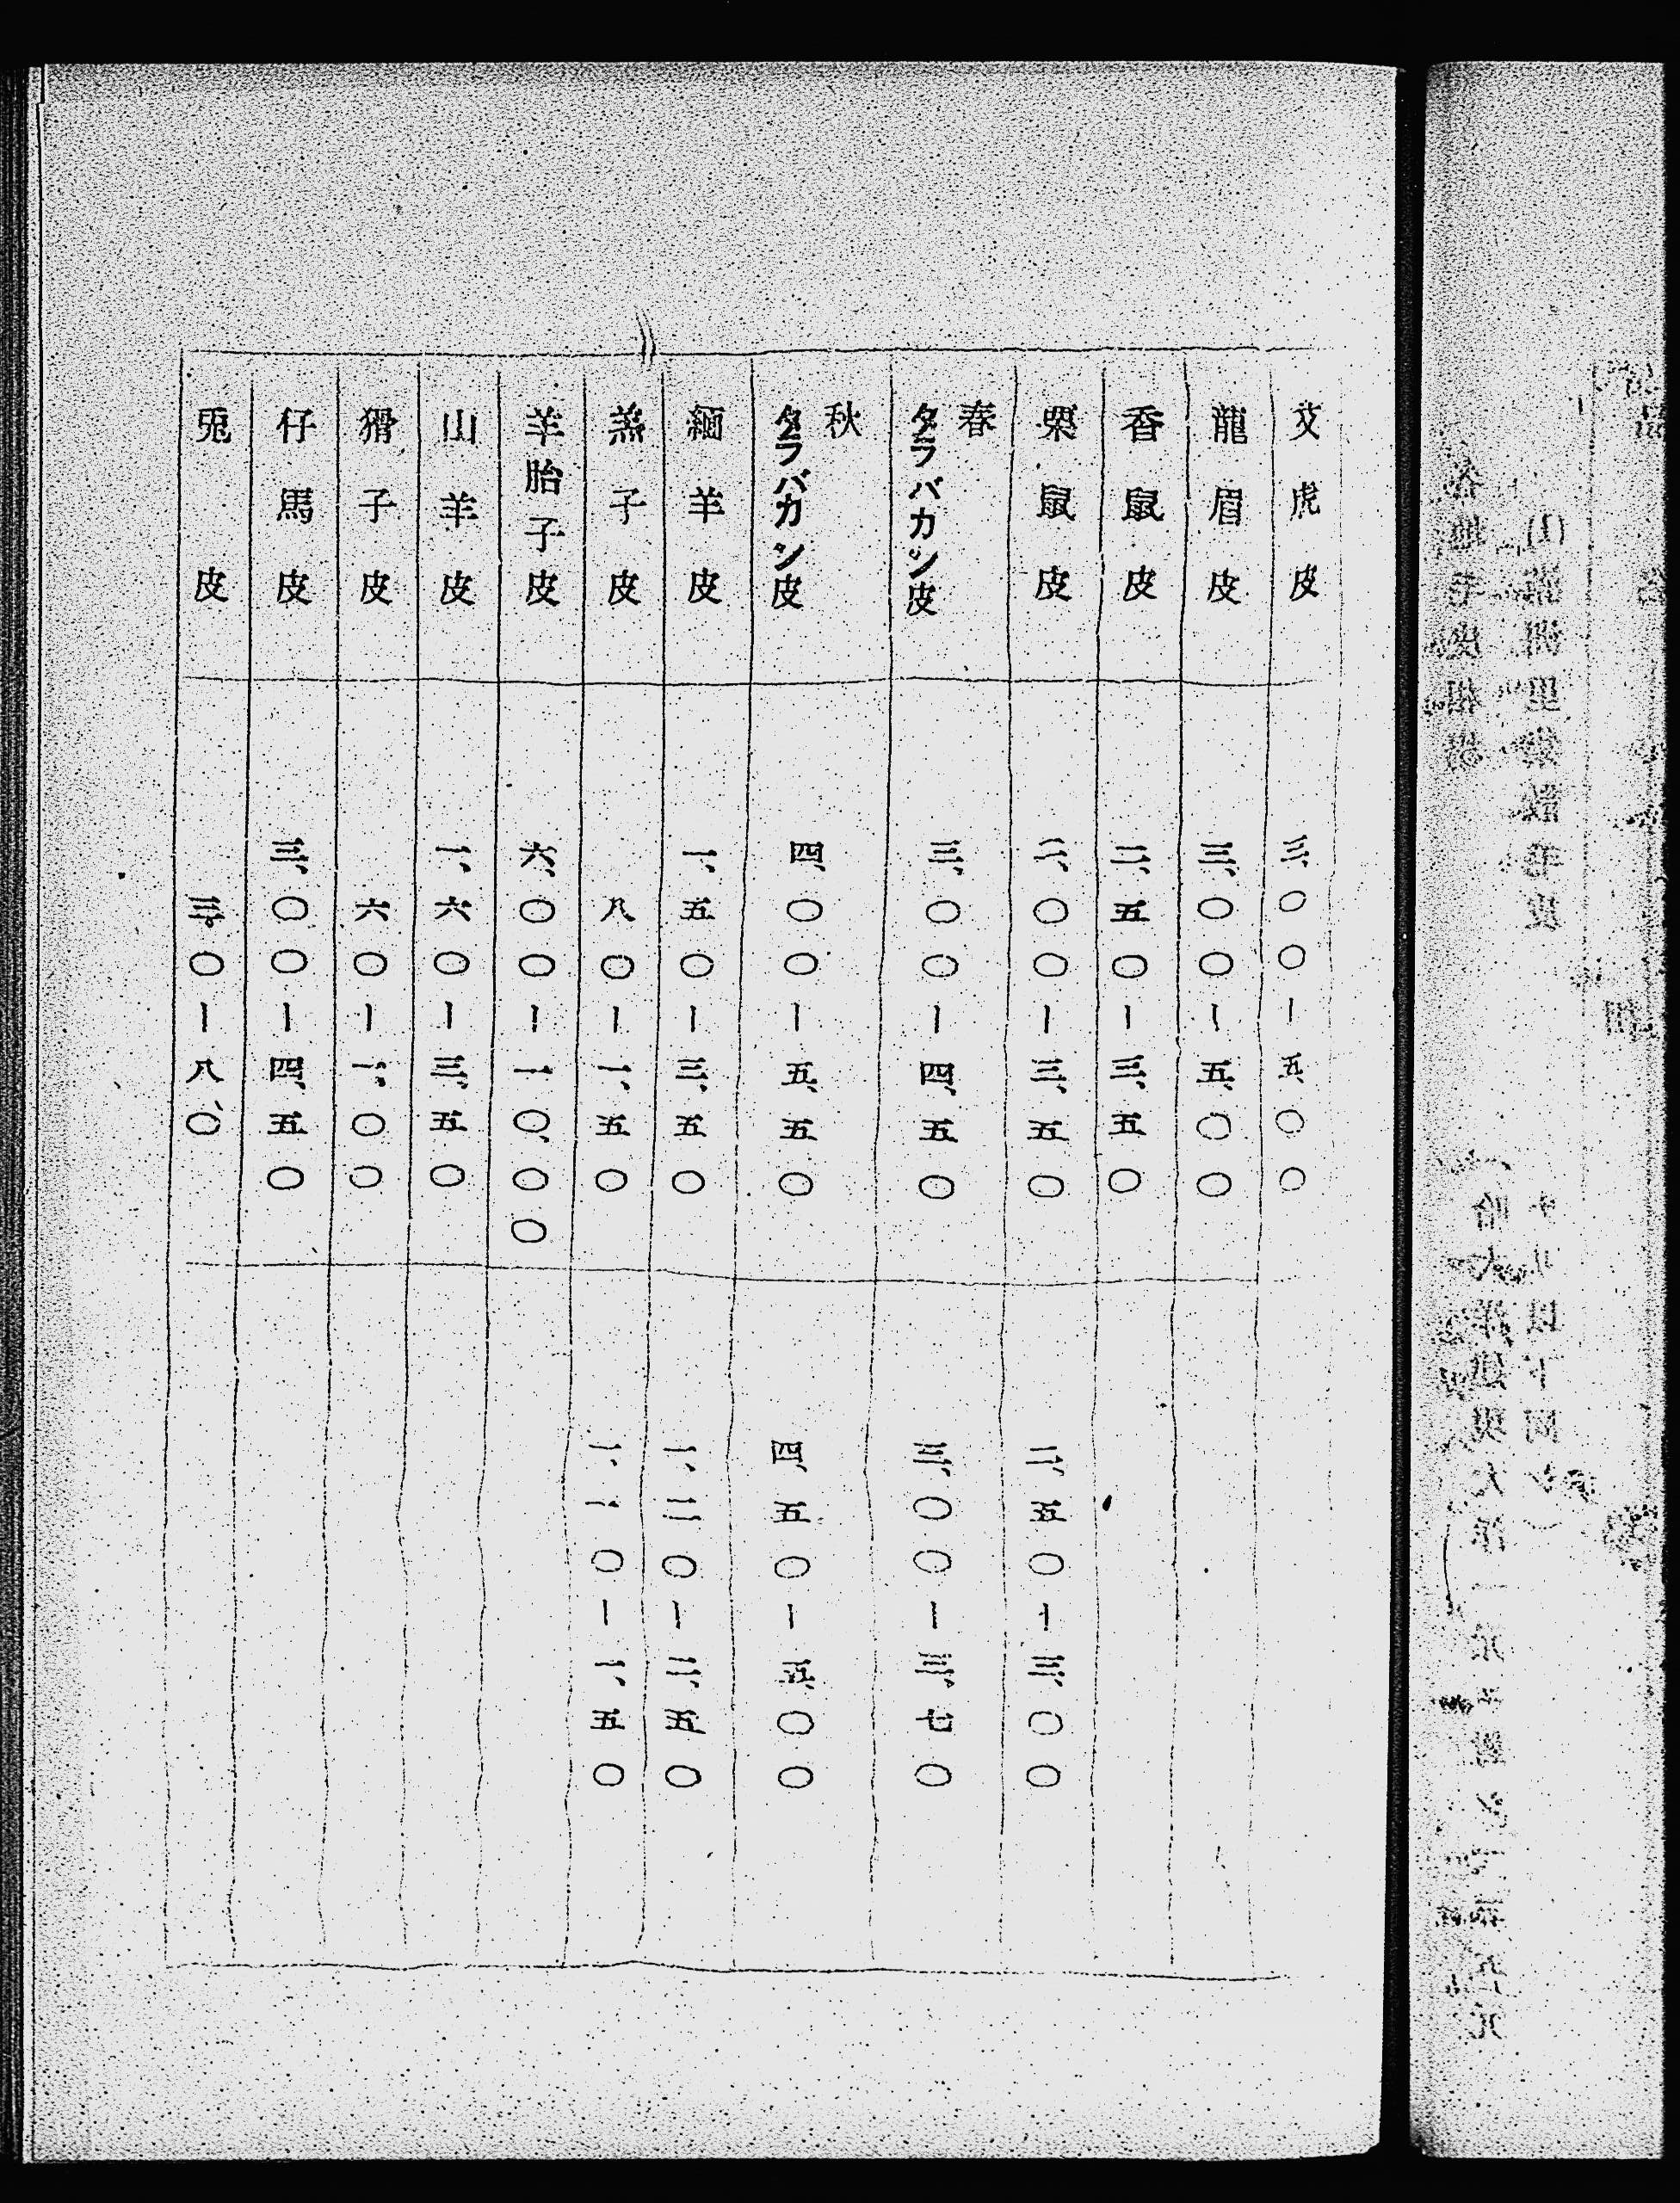 艾虎皮 三、〇〇ー五、〇〇
龍眉皮 三、〇〇ー五、〇〇
香鼠皮 二、五〇ー三、五〇
栗鼠皮 二、〇〇ー三、五〇 二、五〇ー三、〇〇
春タラバカン皮 三、〇〇ー四、五〇 三、〇〇ー三、七〇
秋タラバカン皮 四、〇〇ー五、五〇 四、五〇ー五、〇〇
緬羊皮 一、五〇ー三、五〇 一、二〇ー二、五〇
羔子皮 八〇ー一、五〇 一、一〇ー一、五〇
羊胎子皮 六、〇〇ー一〇、〇〇
山羊皮 一、六〇ー三、五〇
猾子皮 六〇ー一、〇〇
仔馬皮 三、〇〇ー四、五〇
兎皮 三、〇ー八、〇